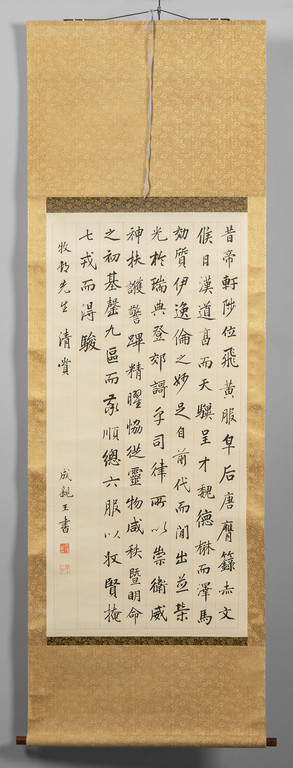 昔帝軒陟位飛黃服皁后唐膺籙赤文
候日漢道亨而天驥呈才魏德楙而澤馬
効質伊逸倫之妙足自前代而間出並榮
光於瑞典登郊謌乎司律所以崇衛威
神扶護警蹕精曜恊從靈物咸秩暨明命
之初基罄九區而率順總六服以收賢掩
七戎而得駿
牧先生清賞
成親王書